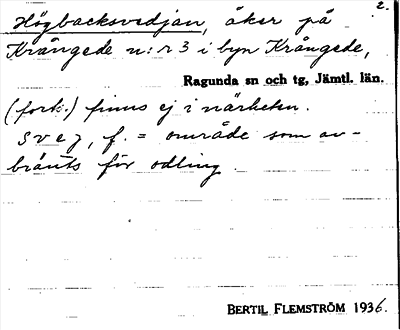 2.
Högbacksvedjan, åker på
Krångede n:r 3 i byn Krångede,
Ragunda sn och tg, Jämtl. län.
(fork.) finns ej i närheten.
svej, f. = område som av-
bränts för odling.
BERTIL FLEMSTRÖM 1936.